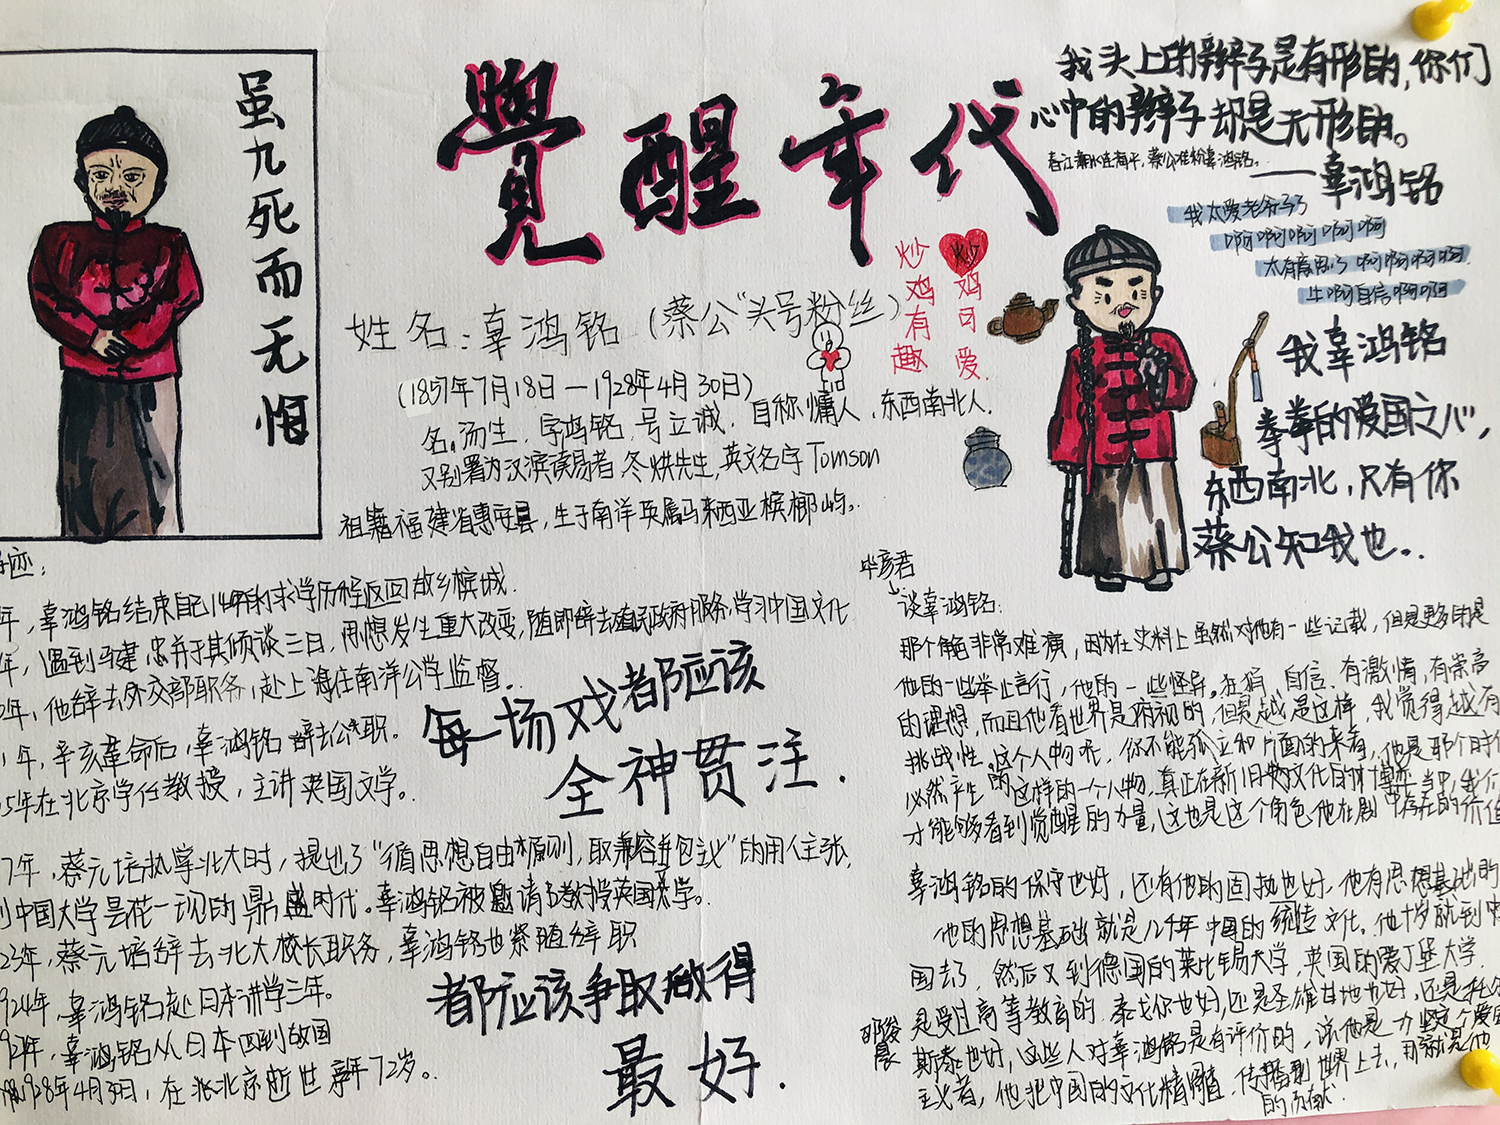 虽九死而无悔
覺醒年代
我头上的辫子是有形的，你们
心中的辫子却是无形的。
——辜鸿铭
我太爱老爷子了
啊啊啊啊啊
太有意思了啊啊啊啊
牛啊自信啊啊
炒鸡有趣
炒鸡可爱.
姓名：辜鸿铭（蔡公“头号粉丝）
(1857年7月18日—1928年4月30日)
名汤生，字鸿铭，号立诚，自称慵人、东西南北人.
又别署为汉滨读易者、冬烘先生,英文名字Tomson
祖籍福建省惠安县，生于南洋英属马来西亚槟榔屿。
我辜鸿铭
拳拳的爱国之心，
东西南北，只有你
蔡公知我也..
迹：
年，辜鸿铭结束自己14年的求学历程返回故乡槟城.
年，遇到马建忠并于其倾谈三日，思想发生重大改变，随即辞去殖民政府服务，学习中国文化
年，他辞去外交部职务，赴上海任南洋公学监督.
1年，辛亥革命后，辜鸿铭辞去公职。
5年在北京学任教授，主讲英国文学。
每一场戏都应该
全神贯注.
7年，蔡元培执掌北大时，提出了“循思想自由原则，取兼容并包主义”的用人主张，
中国大学昙花一现的鼎盛时代。辜鸿铭被邀请了教授英国文学。
23年，蔡元培辞去北大校长职务，辜鸿铭也紧随辞职
924年，辜鸿铭赴日本讲学三年。
92年，辜鸿铭从日本回到故国
1928年4月30日，在北京逝世享年72岁。
都应该争取做得
最好.
毕彦君
谈辜鸿铭：
那个角色非常难演，因为在史料上虽然对他有一些记载，但是更多的是
他的一些举止言行，他的一些怪异。狂狷、自信、有激情，有崇高
的理想，而且他看世界是俯视的，但是越是这样，我觉得越有
挑战性。这个人物呢，你不能孤立和片面的来看，他是那个时代
必然产生的这样的一个人物，真正在新旧文化的博弈当中，我们
才能够看到觉醒的力量，这也是这个角色他在剧中存在的价值
辜鸿铭的保守也好，还有他的固执也好，他有思想基础的
他的思想基础就是几千年中国的传统文化。他十岁就到
国去了，然后又到德国的莱比锡大学，英国的爱丁堡大学
是受过高等教育的.泰戈尔也好，还是圣雄甘地也好，还是托尔
斯泰也好，这些人对辜鸿铭是有评价的，说他是一个坚定个爱国
主义者，他把中国的文化精髓，传播到世界上去，那就是他
的贡献.